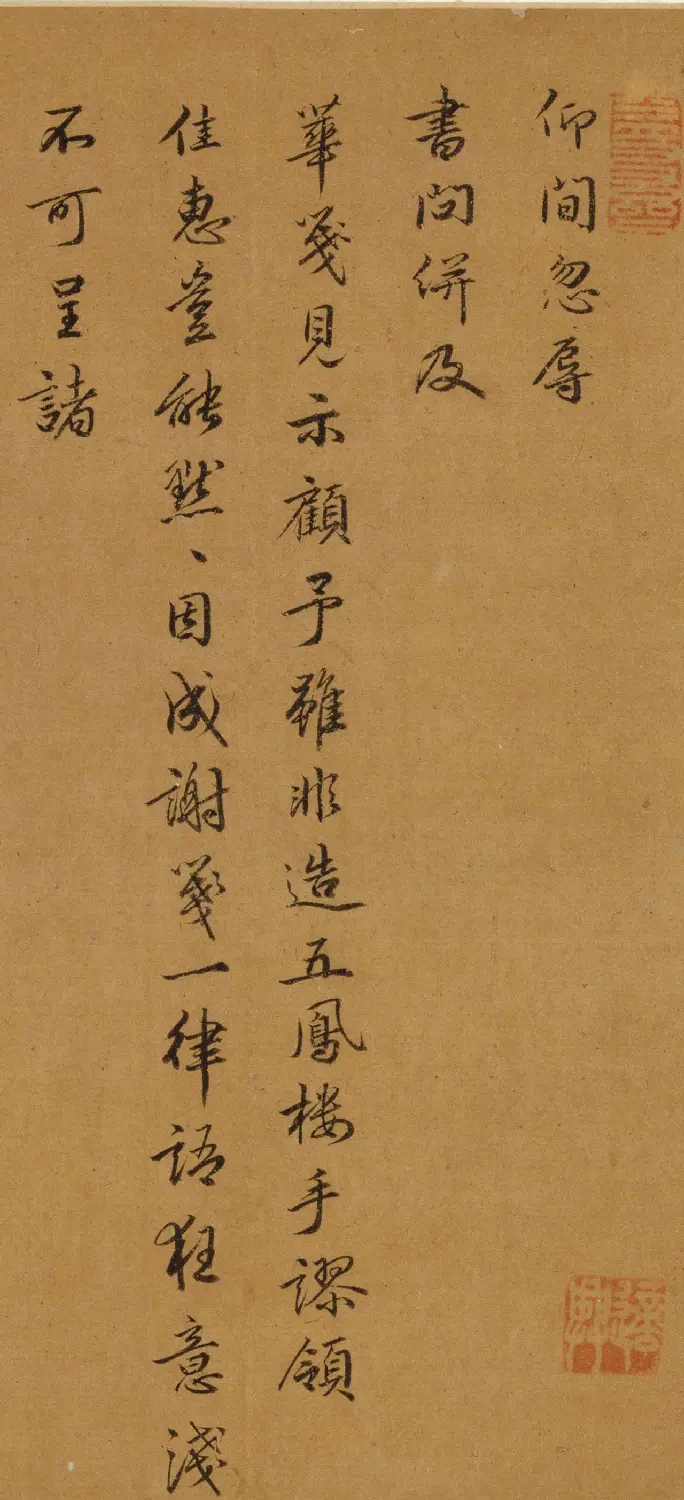 仰間忽辱
書問併及
華箋見示顧予雖非造五鳳樓手謬領
佳惠豈能默、因成謝箋一律語狂意淺
不可呈諸